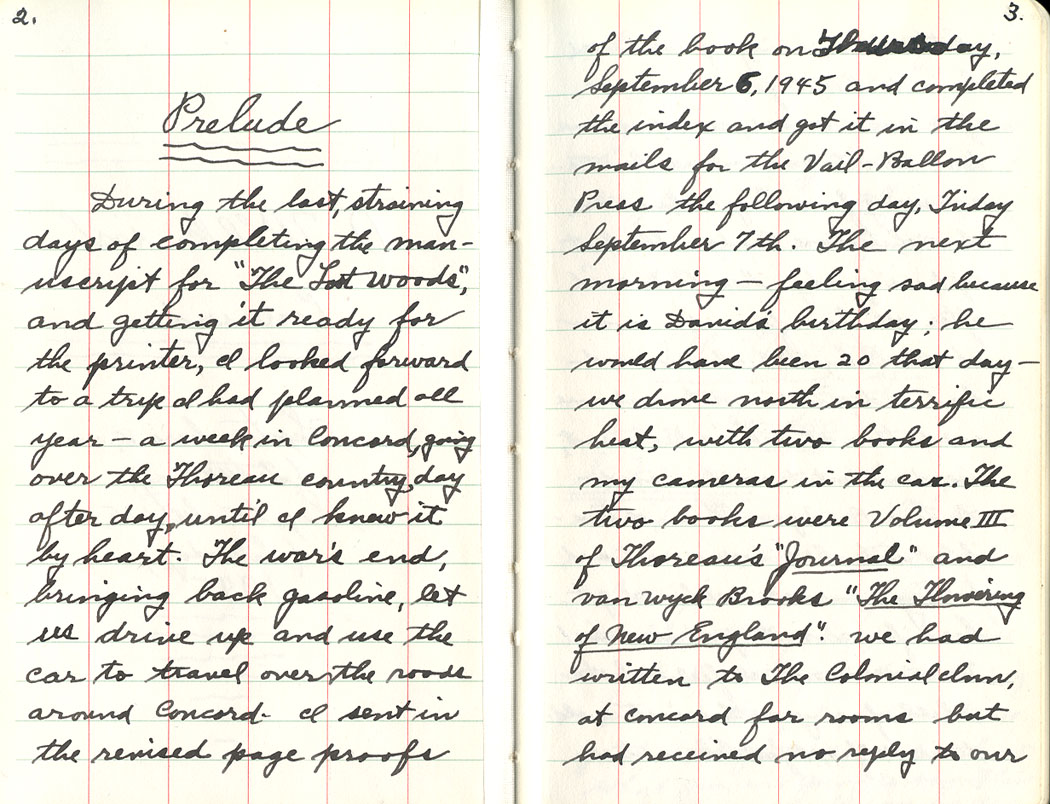 2.
Prelude
During the last, straining
days of completing the man-
uscript for "The Lost Woods",
and getting it ready for
the printer, I looked forward
to a trip I had planned all
year — a week in Concord, going
over the Thoreau country, day
after day, until I knew it
by heart. The war's end,
bringing back gasoline, let
us drive up and use the
car to travel over the roads
around Concord. I sent in
the revised page proofs
3.
of the book on Thursday,
September 6, 1945 and completed
the index and got it in the
mails for the Vail-Ballou
Press the following day, Friday
September 7th. The next
morning — feeling sad because
it is David's birthday; he
would have been 20 that day —
we drove north in terrific
heat, with two books and
my cameras in the car. The
two books were Volume III
of Thoreau's "Journal" and
van Wyck Brooks "The Flowering
of New England". We had
written to The Colonial Inn,
at Concord for rooms but
had received no reply to our